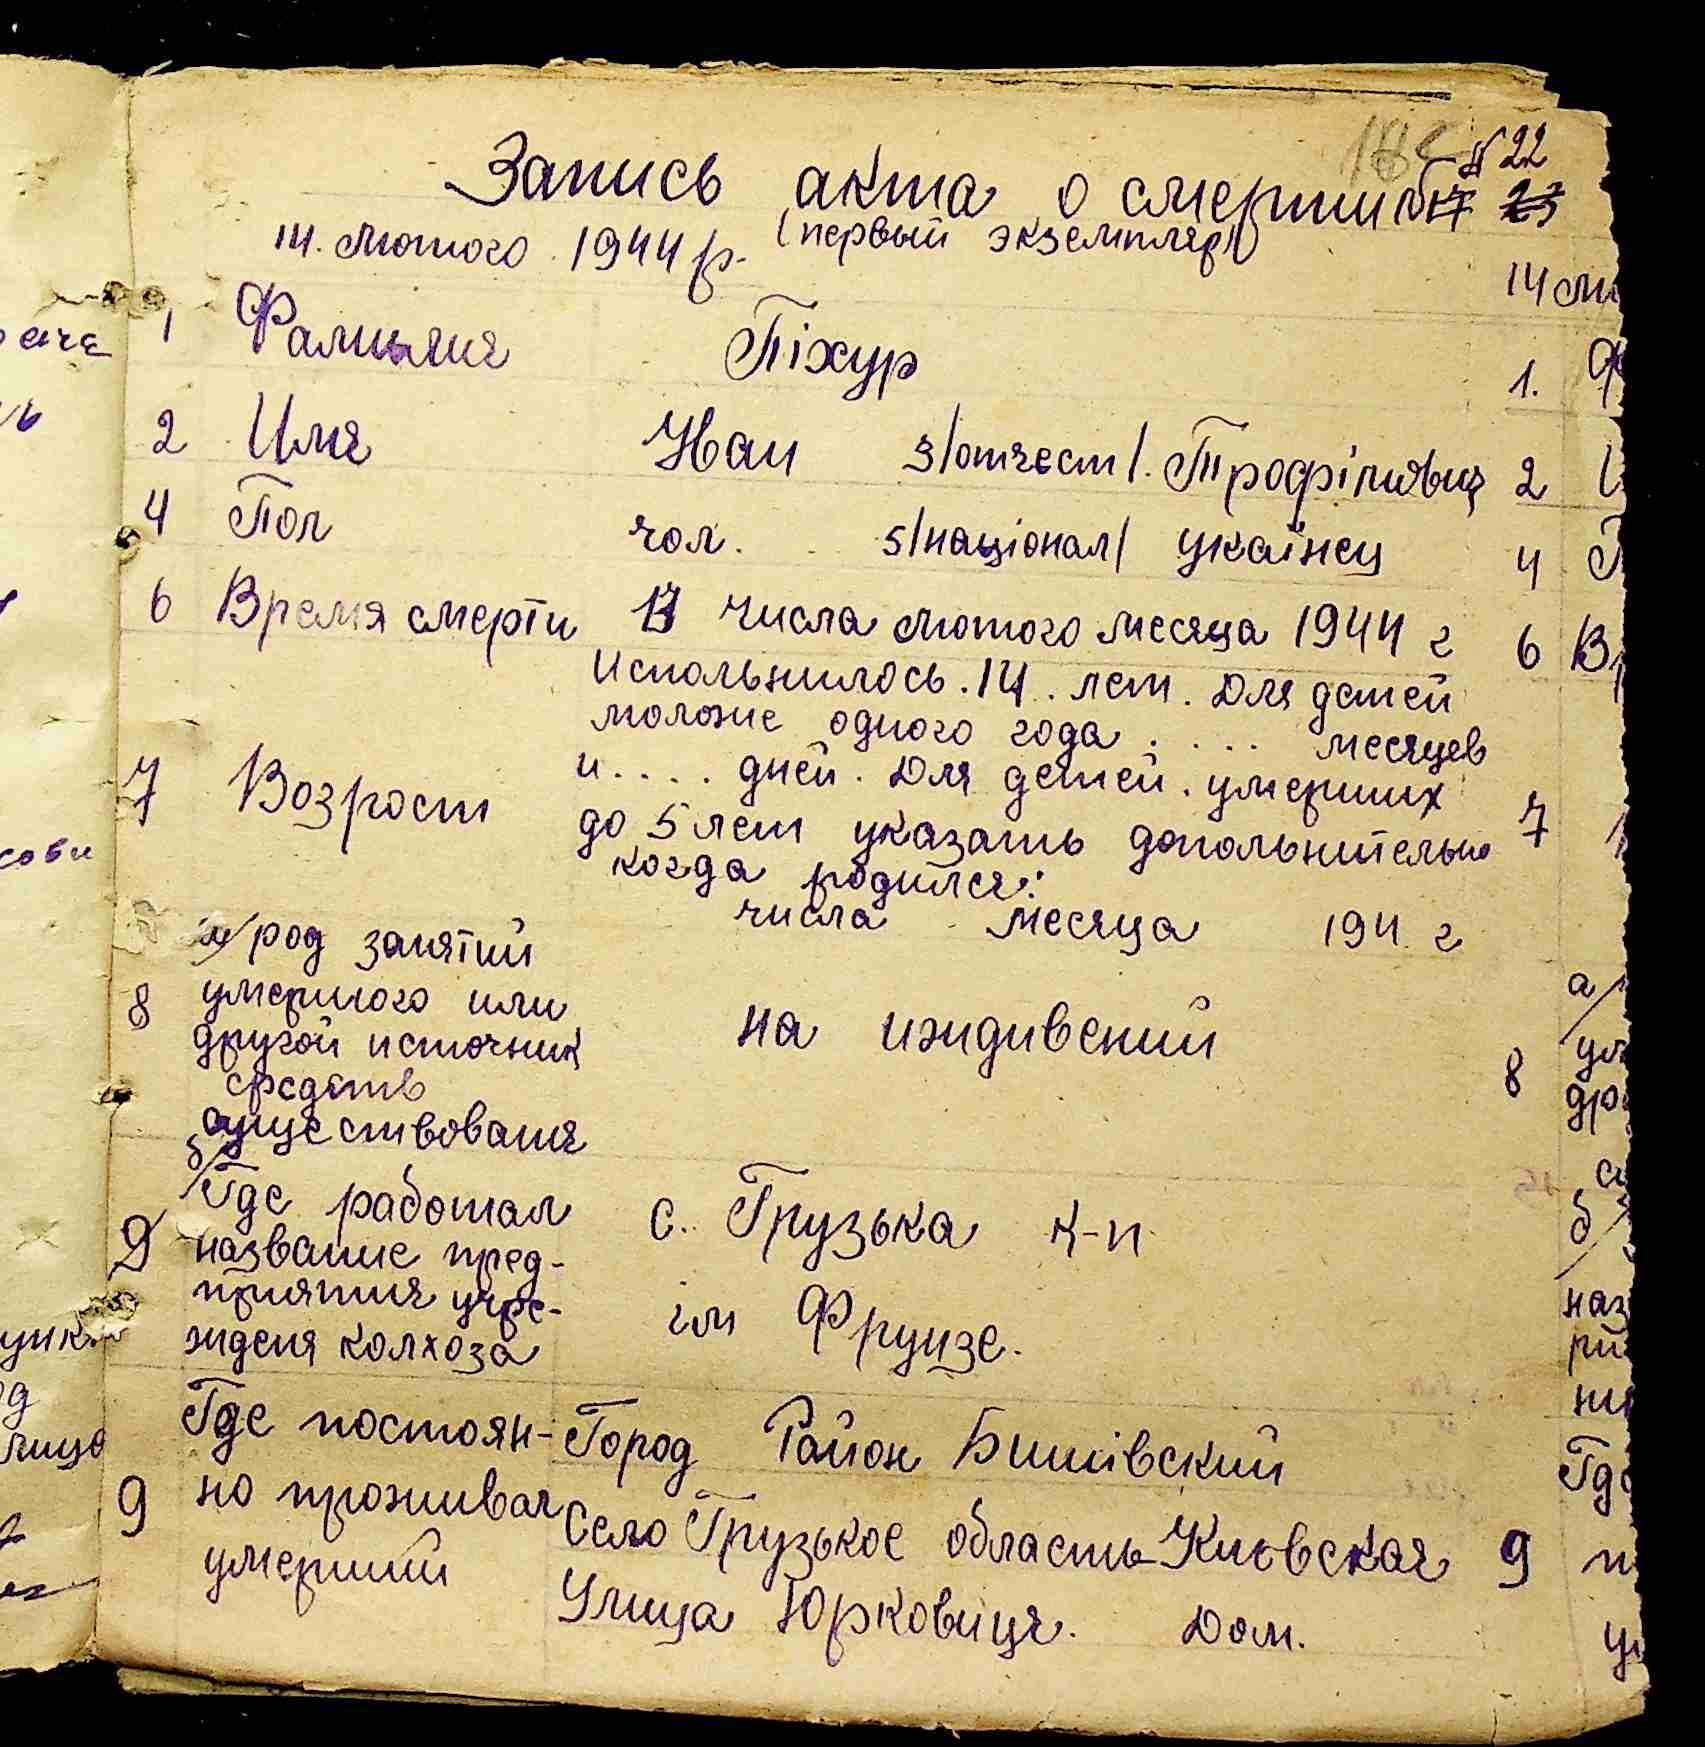 № 22
Запись акта о смерти № 23
14. лютого 1944 р. (первый экземпляр)
1 Фамилия Піхур
2 Имя Иван 3/отчест/. Трофімович
4 Пол чол. 5/націонал/ українец
6 Время смерти 13 числа лютого месяца 1944 г
Испольнилось. 14. лет. Для детей
моложе одного года . . . . месяцев
7 Возрост и . . . . дней. Для детей. умерших
до 5 лет указать допольнительно
когда родился:
числа месяца 194 г
а/ род занятий
8 умершого или
другой источник на иждивений
средств
существования
б/
Где работал с. Грузька к-п
9 название пред-
приятия учре- ім Фрунзе.
ждения колхоза
Где постоян- Город Район Бишівский
9 но проживал Село Грузькое область Киевская
умерший Улица Юрковиця. Дом.
14 лю
1. Ф
2 И
4 П
6 Вр
7
а/
8 ум
др
б/
наз
Гд
9